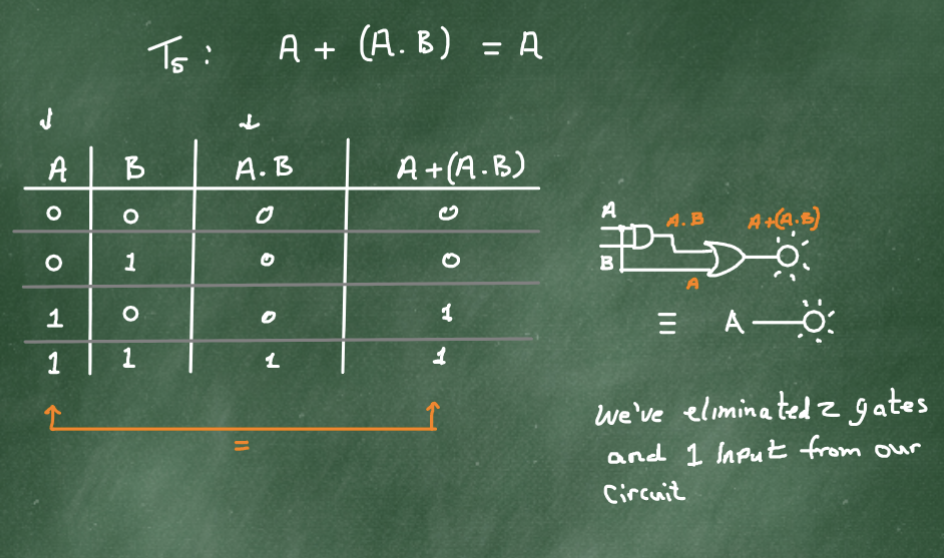 T5: A + (A.B) = A
A B A.B A+(A.B)
0 0 0 0
0 1 0 0
1 0 0 1
1 1 1 1
=
A A.B A+(A.B)
B
A
≡ A
We've eliminated 2 gates
and 1 Input from our
Circuit